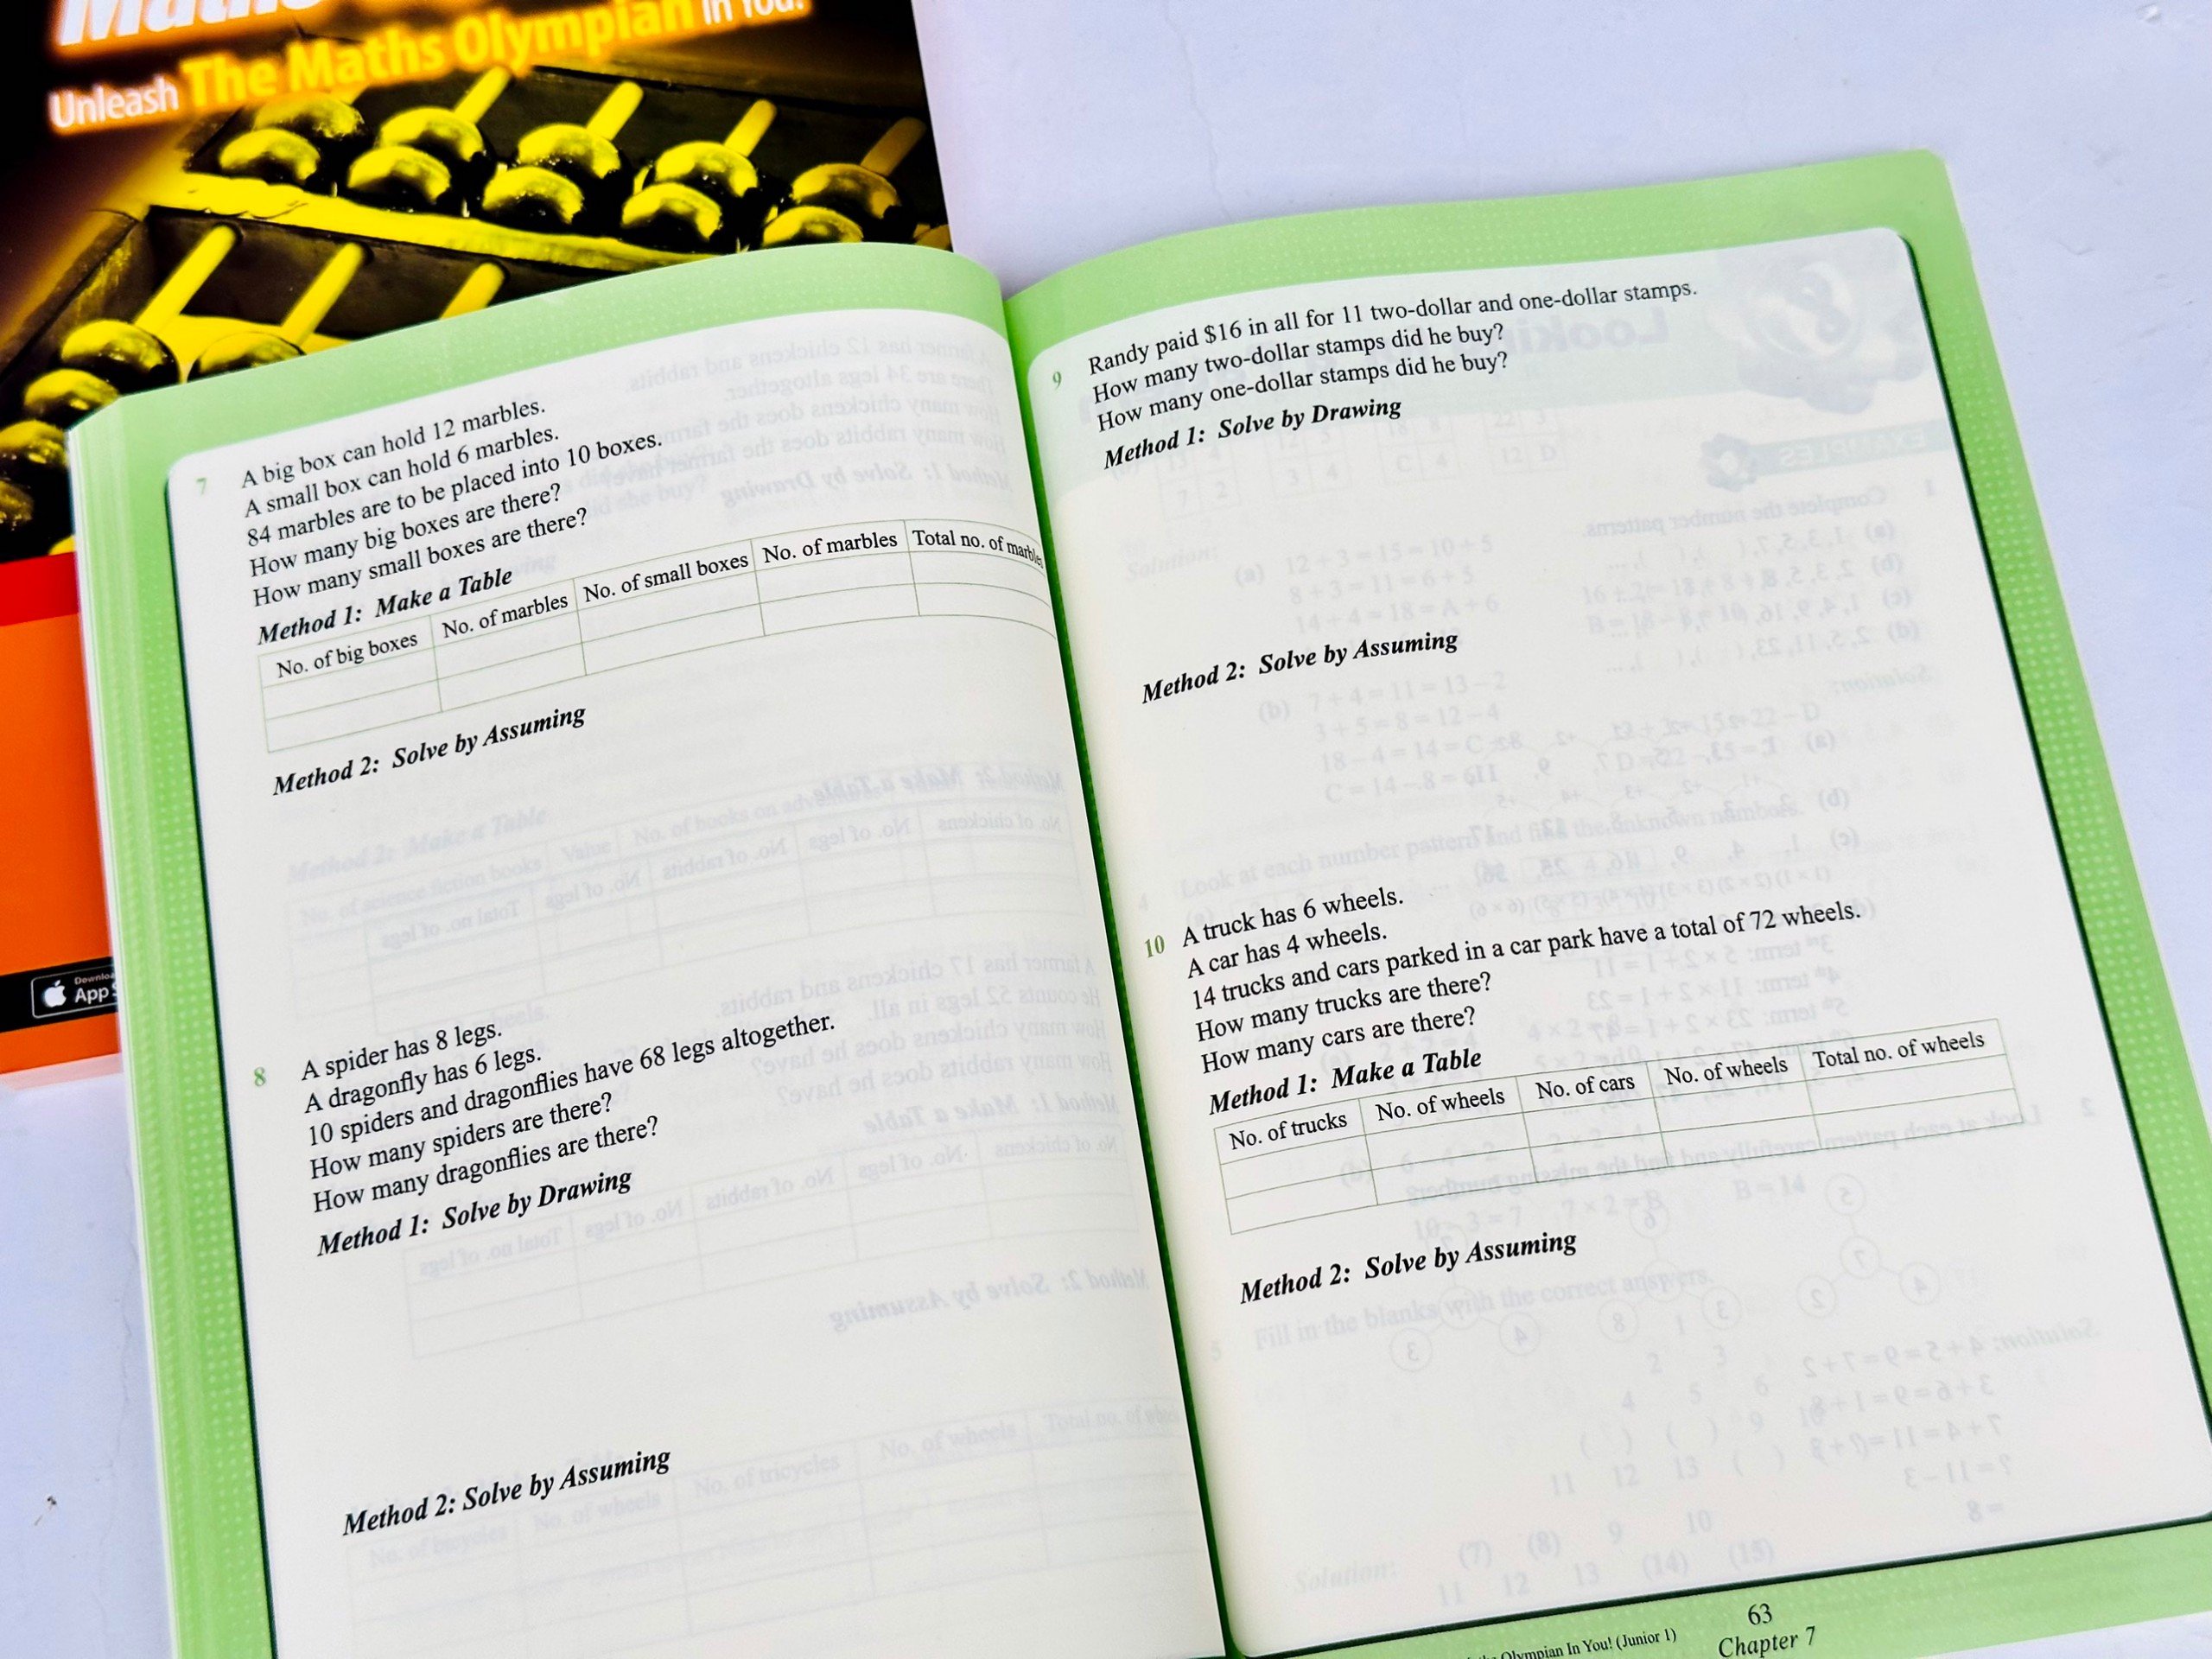 Maths
Unleash The Maths Olympian In You!
App
7 A big box can hold 12 marbles.
A small box can hold 6 marbles.
84 marbles are to be placed into 10 boxes.
How many big boxes are there?
How many small boxes are there?
Method 1: Make a Table
No. of big boxes No. of marbles No. of small boxes No. of marbles Total no. of marbles
Method 2: Solve by Assuming
8 A spider has 8 legs.
A dragonfly has 6 legs.
10 spiders and dragonflies have 68 legs altogether.
How many spiders are there?
How many dragonflies are there?
Method 1: Solve by Drawing
Method 2: Solve by Assuming
9 Randy paid $16 in all for 11 two-dollar and one-dollar stamps.
How many two-dollar stamps did he buy?
How many one-dollar stamps did he buy?
Method 1: Solve by Drawing
Method 2: Solve by Assuming
10 A truck has 6 wheels.
A car has 4 wheels.
14 trucks and cars parked in a car park have a total of 72 wheels.
How many trucks are there?
How many cars are there?
Method 1: Make a Table
No. of trucks No. of wheels No. of cars No. of wheels Total no. of wheels
Method 2: Solve by Assuming
Olympian In You! (Junior 1)
63
Chapter 7